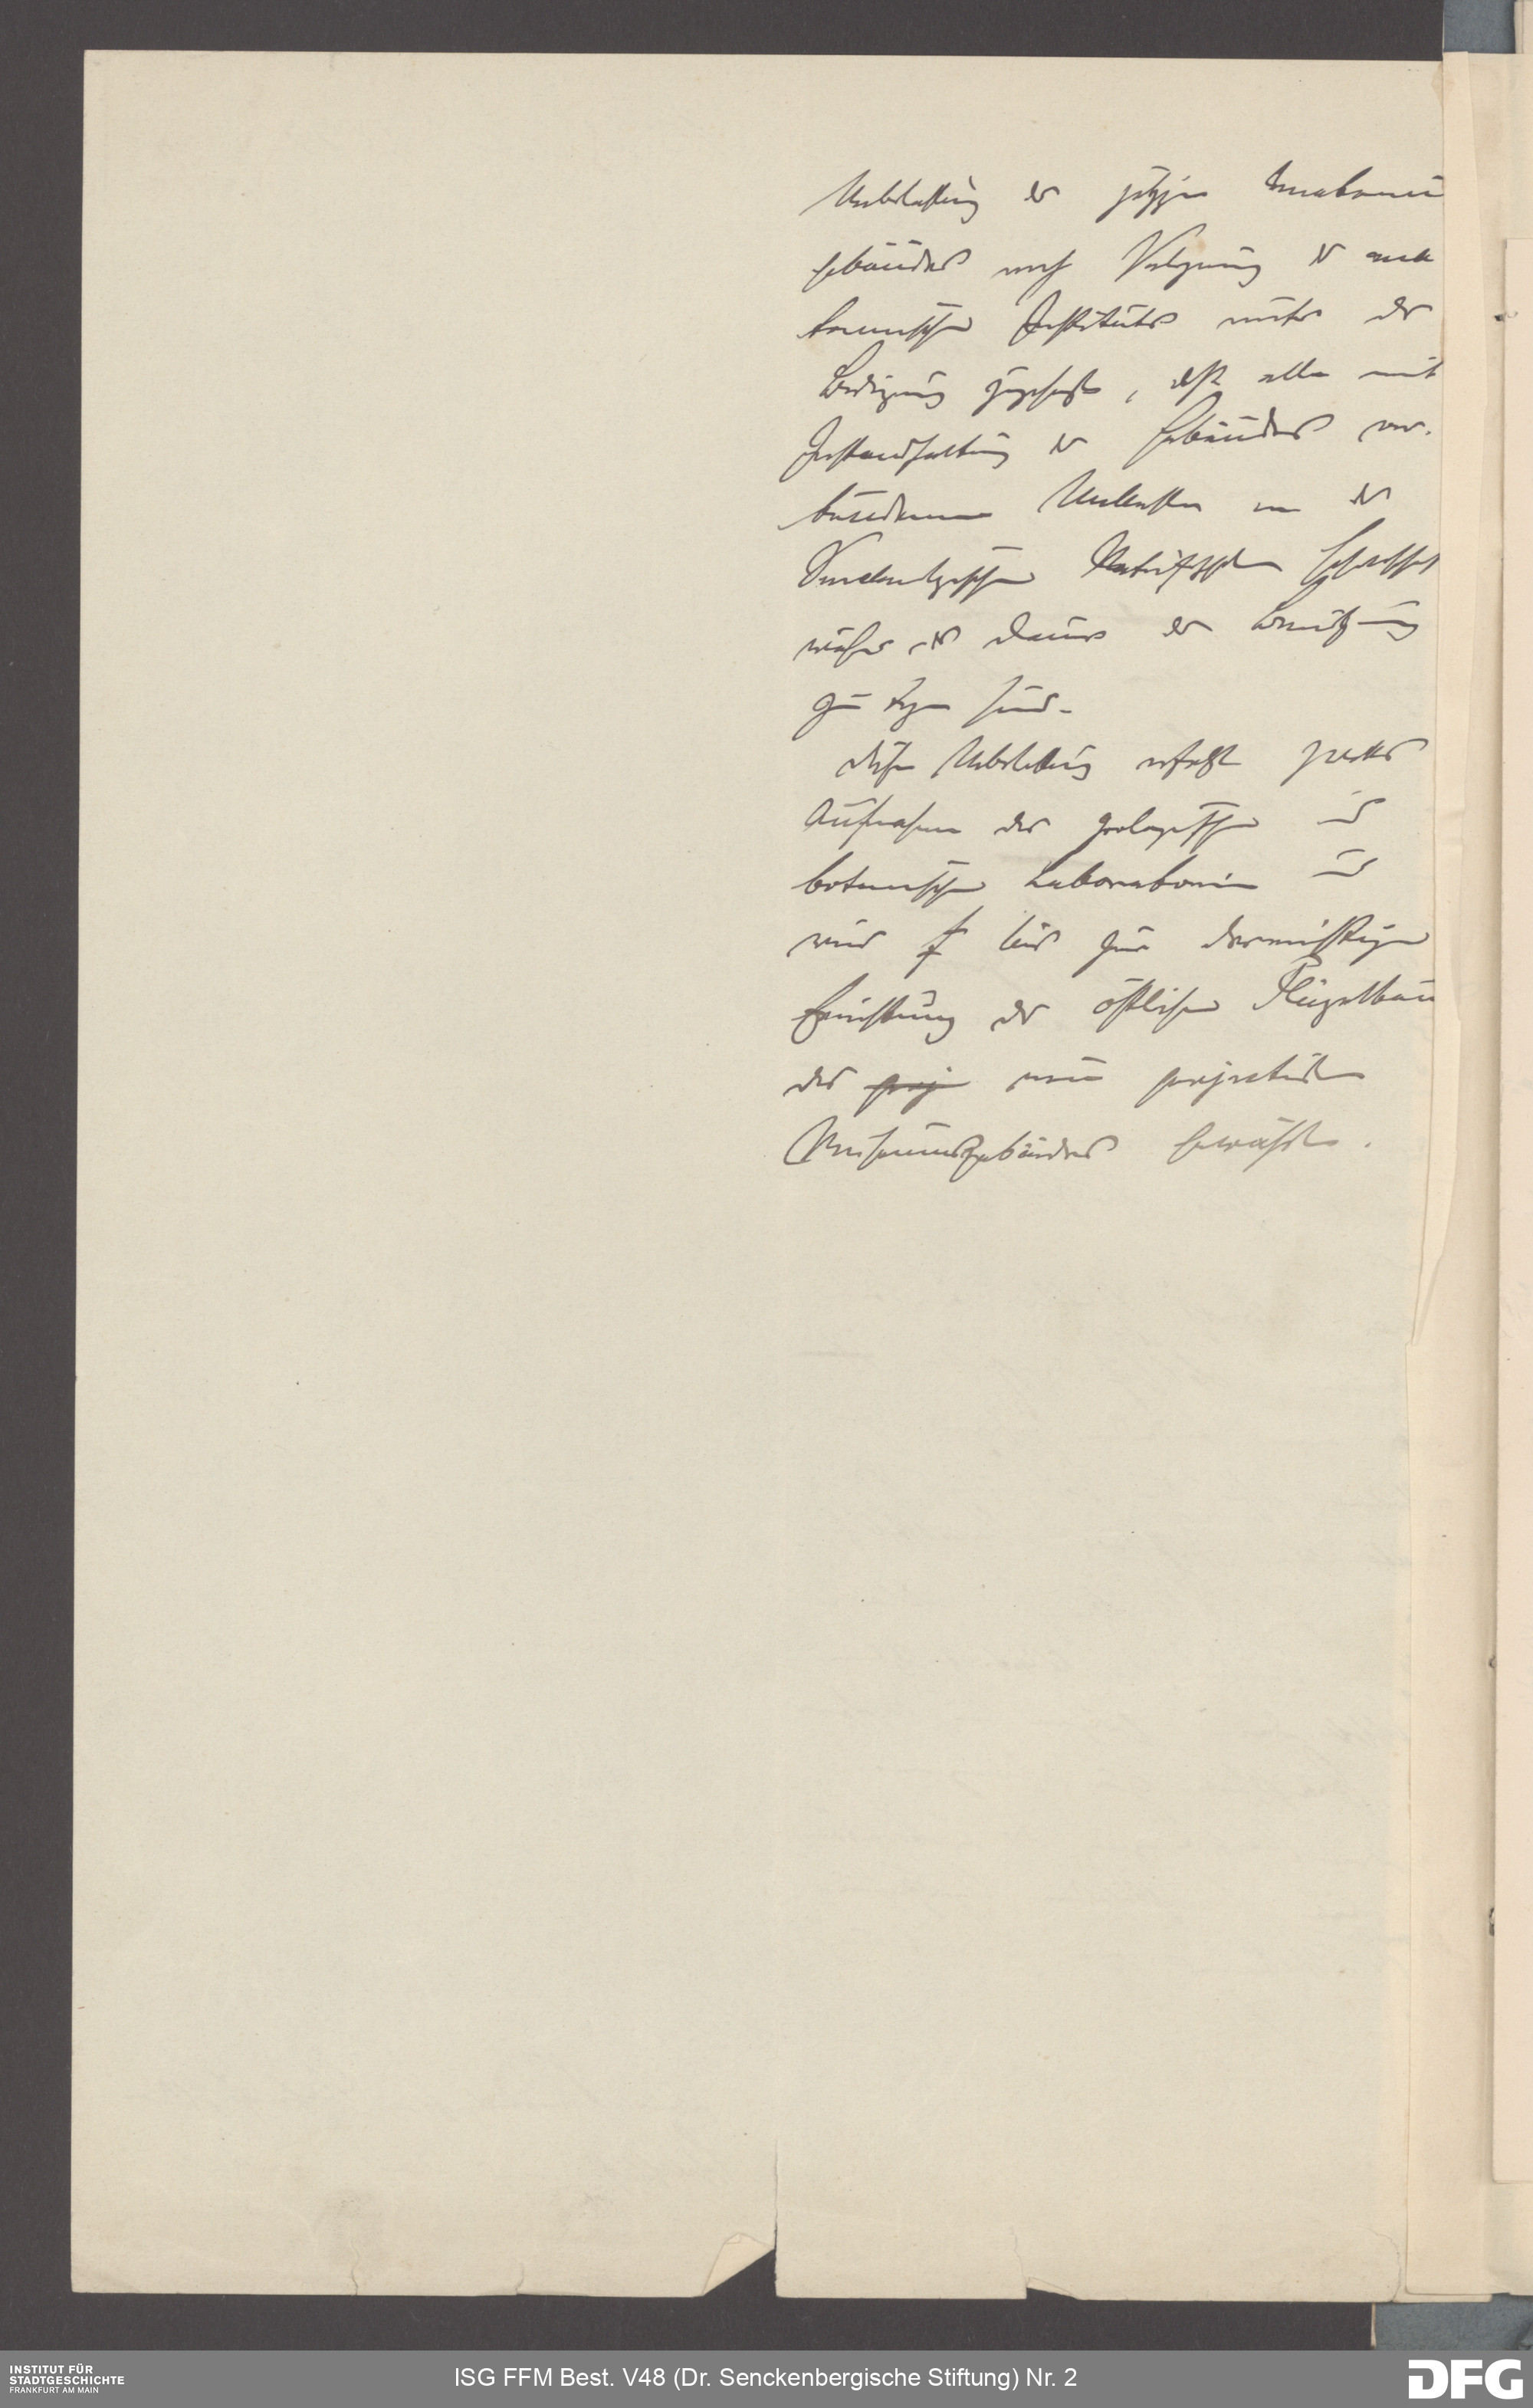 Ueberlassung des jetzigen Anatomie
gebäudes nach Verlegung des ana
tomischen Instituts unter der
Bedingung zugesagt, daß alle mit
Instandhaltung des Gebäudes ver-
bundenen Unkosten von der
Senckenbergischen Naturforschenden Gesellschaft
während der Dauer der Benützung
zu tragen sind.
Diese Ueberlassung erfolgt zwecks
Aufnahme der zoologischen und
botanischen Laboratorien und
wird bis zur
Errichtung des östlichen Flügelbau
des proj neu projectirten
Museumsgebäudes gewährt.
INSTITUT FÜR
STADTGESCHICHTE
FRANKFURT AM MAIN
ISG FFM Best. V48 (Dr. Senckenbergische Stiftung) Nr. 2
DFG